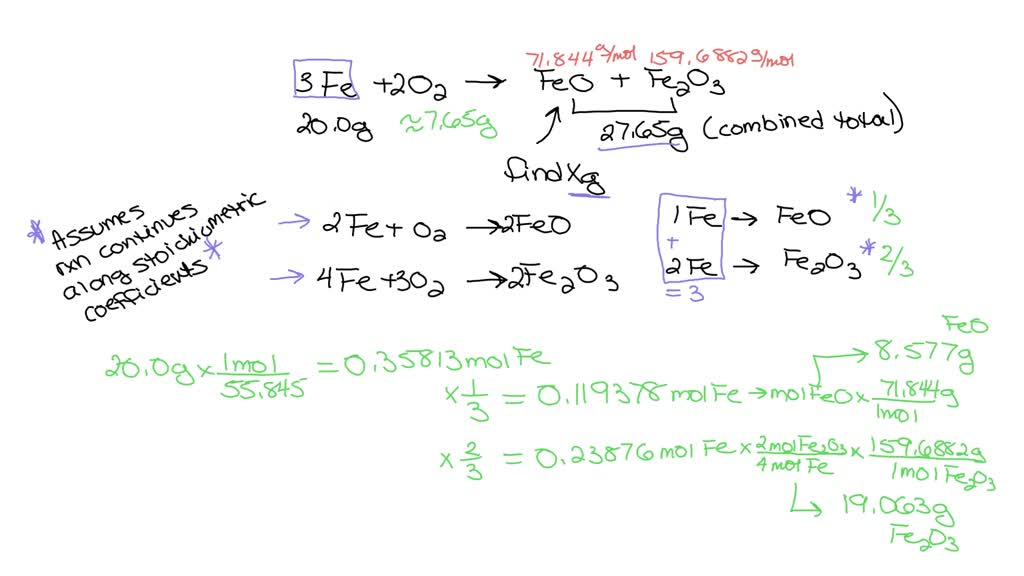 71.844 g/mol 159.6882 g/mol
3 Fe + 2O₂ → FeO + Fe₂O₃
20.0g ≈7.65g 27.65g (combined total)
find Xg
* Assumes rxn continues along stoichiometric coefficients *
→ 2Fe + O₂ → 2FeO
→ 4Fe + 3O₂ → 2Fe₂O₃
1 Fe → FeO * 1/3
+
2Fe → Fe₂O₃ * 2/3
= 3
20.0g × 1mol/55.845 = 0.35813 mol Fe
× 1/3 = 0.119378 mol Fe → mol FeO × 71.844g/1mol
→ 8.577g
FeO
× 2/3 = 0.23876 mol Fe × 2 mol Fe₂O₃/4 mol Fe × 159.6882g/1mol Fe₂O₃
↳ 19.063g
Fe₂O₃